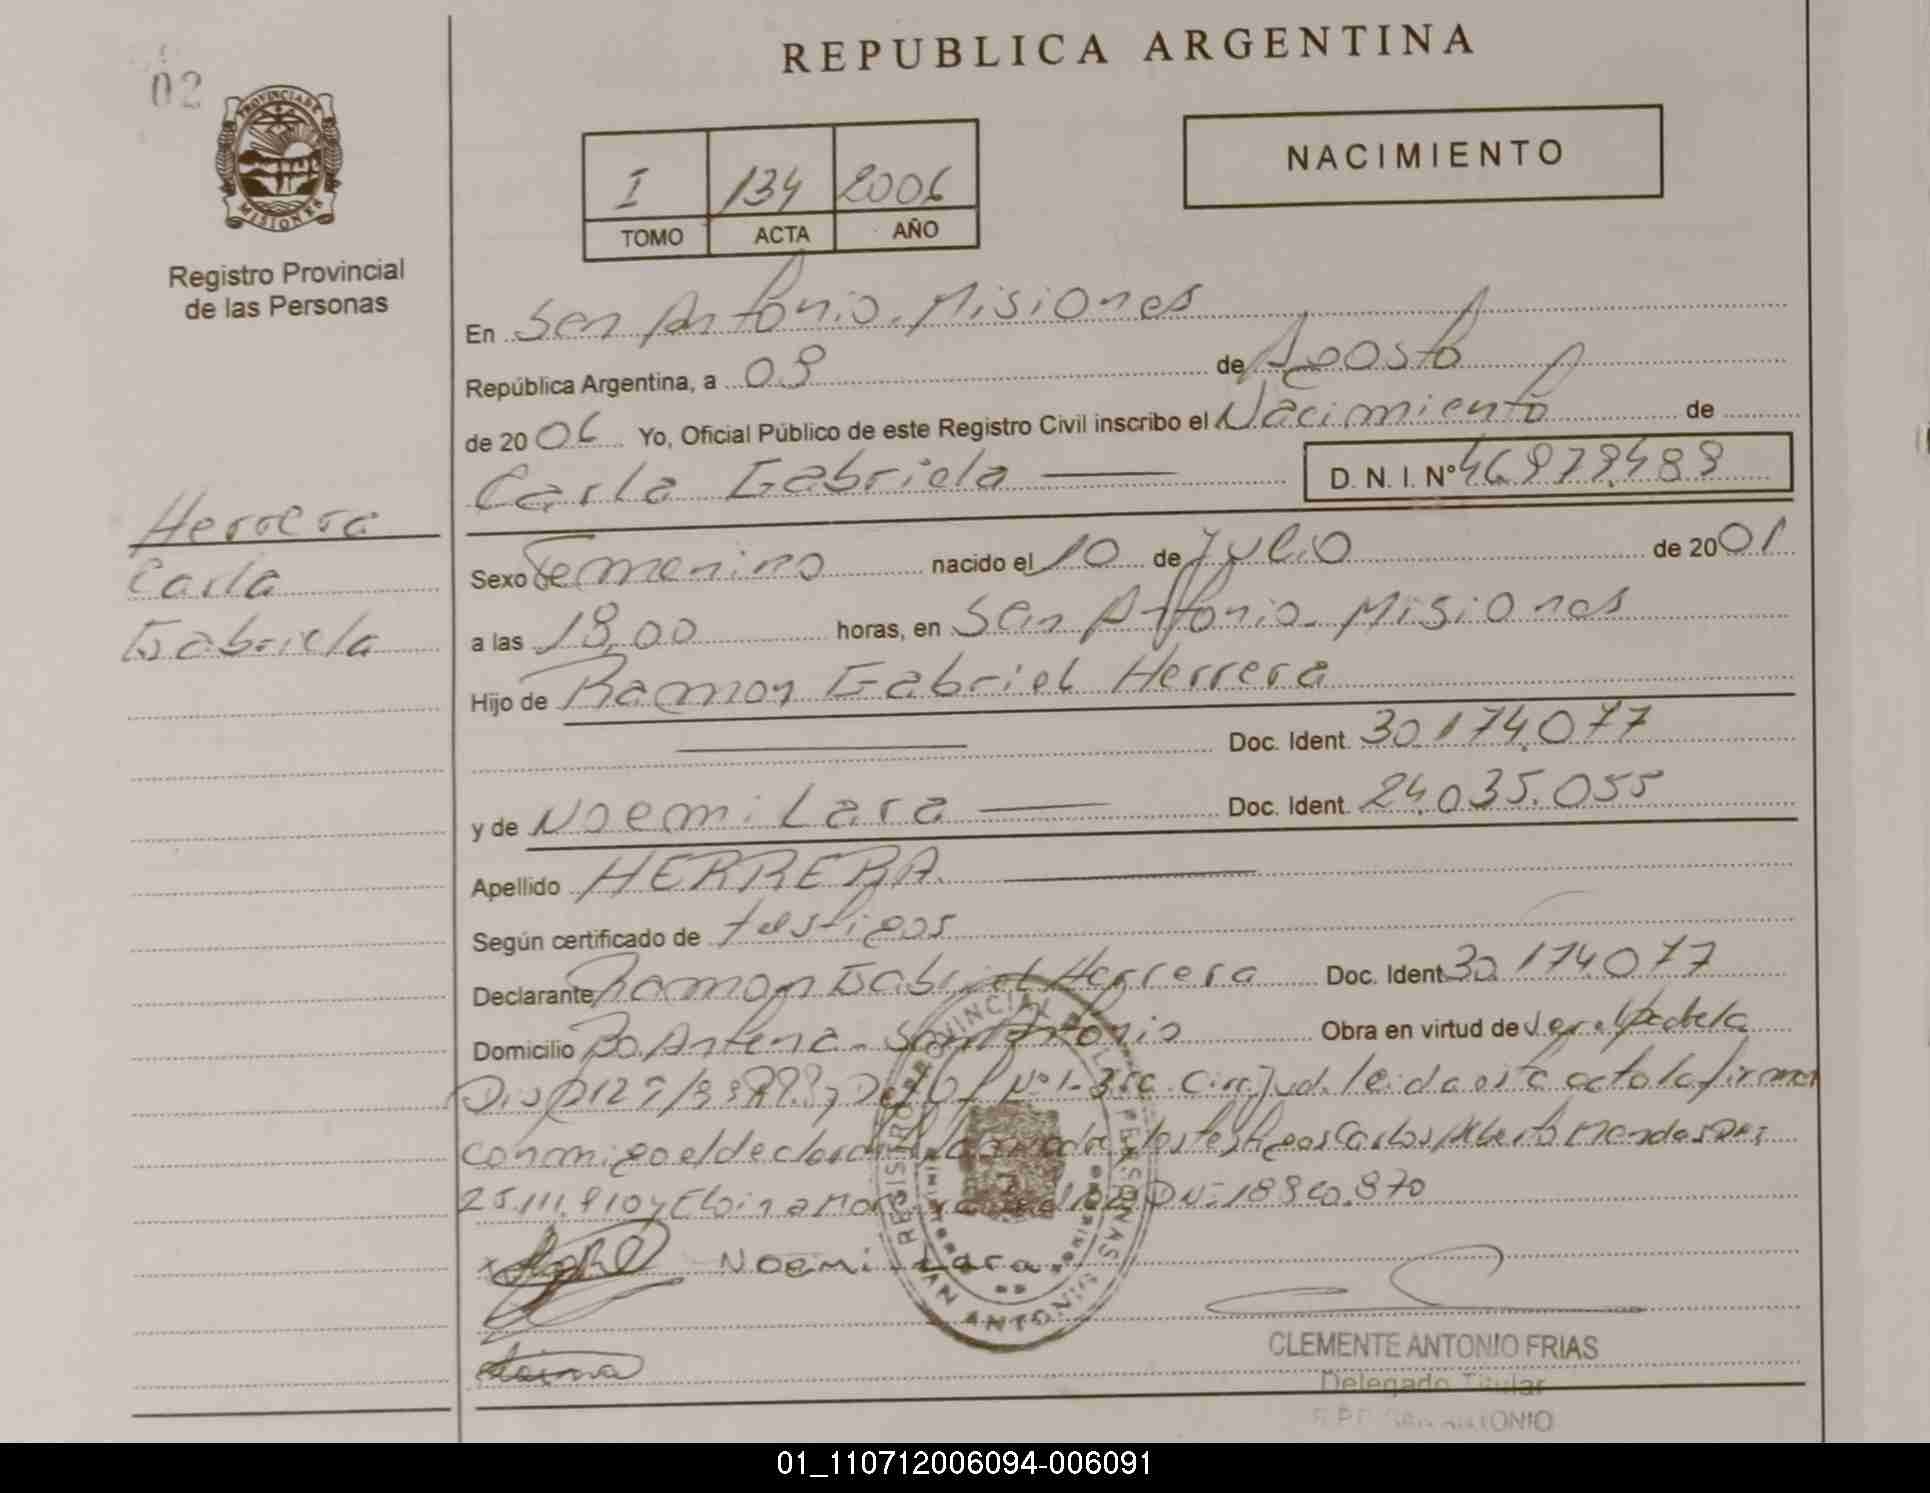 REPUBLICA ARGENTINA
02
PROVINCIA DE
MISIONES
Registro Provincial
de las Personas
NACIMIENTO
I 134 2006
TOMO ACTA AÑO
En San Antonio. Misiones
República Argentina, a 09 de Agosto
de 2006 Yo, Oficial Público de este Registro Civil inscribo el Nacimiento de
Carla Gabriela D. N. I. Nº 46.979.489
Herrera
Carla
Gabriela
Sexo Femenino nacido el 10 de Julio de 2001
a las 18,00 horas, en San Antonio. Misiones
Hijo de Ramon Gabriel Herrera
Doc. Ident. 30.174.077
y de Noemi Lara Doc. Ident. 24.035.055
Apellido HERRERA.
Según certificado de testigos
Declarante Ramon Gabriel Herrera Doc. Ident. 30.174077
Domicilio Bo. Antena - San Antonio Obra en virtud de
Nº 1- 3ra. Circ. Jud. leida esta acta la firman
conmigo el declarante, la madre y los testigos Carlos Alberto
25.111.910 y
Noemi Lara
REGISTRO PROVINCIAL DE LAS PERSONAS
SAN ANTONIO
CLEMENTE ANTONIO FRIAS
Delegado Titular
SAN ANTONIO
01_110712006094-006091